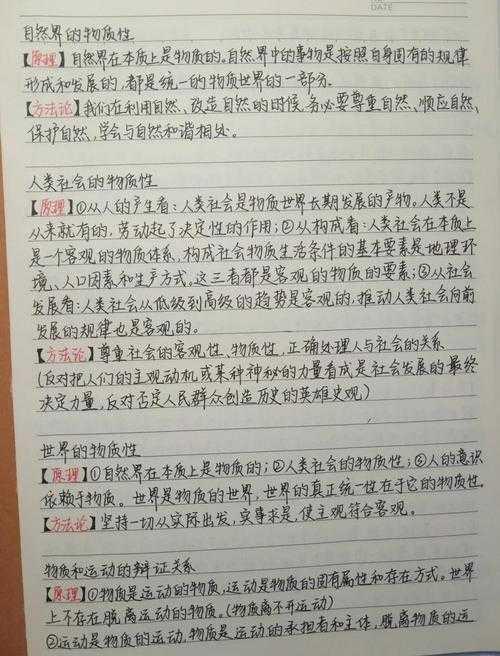 DATE
自然界的物质性
【原理】自然界在本质上是物质的。自然界中的事物是按照自身固有的规律
形成和发展的，都是统一的物质世界的一部分。
【方法论】我们在利用自然、改造自然的时候，务必要尊重自然、顺应自然、
保护自然，学会与自然和谐相处。
人类社会的物质性
【原理】①从人的产生看：人类社会是物质世界长期发展的产物。人类不是
从来就有的，劳动起了决定性的作用；②从构成看：人类社会在本质上
是一个客观的物质体系，构成社会物质生活条件的基本要素是地理环
境、人口因素和生产方式。这三者都是客观的物质的要素；③从社会
发展看：人类社会从低级到高级的趋势是客观的，推动人类社会向前
发展的规律也是客观的。
【方法论】尊重社会的客观性、物质性，正确处理人与社会的关系
(反对把人们的主观动机或某种神秘的力量看成是社会发展的最终
决定力量，反对否定人民群众创造历史的英雄史观)
世界的物质性
【原理】①自然界在本质上是物质的；②人类社会的物质性；③人的意识
依赖于物质。世界是物质的世界，世界的真正统一性在于它的物质性。
【方法论】坚持一切从实际出发，实事求是，使主观符合客观。
物质和运动的辩证关系
【原理】①物质是运动的物质，运动是物质的固有属性和存在方式。世界
上不存在脱离运动的物质。(物质离不开运动)
②运动是物质的运动，物质是运动的承担者和主体，脱离物质的运